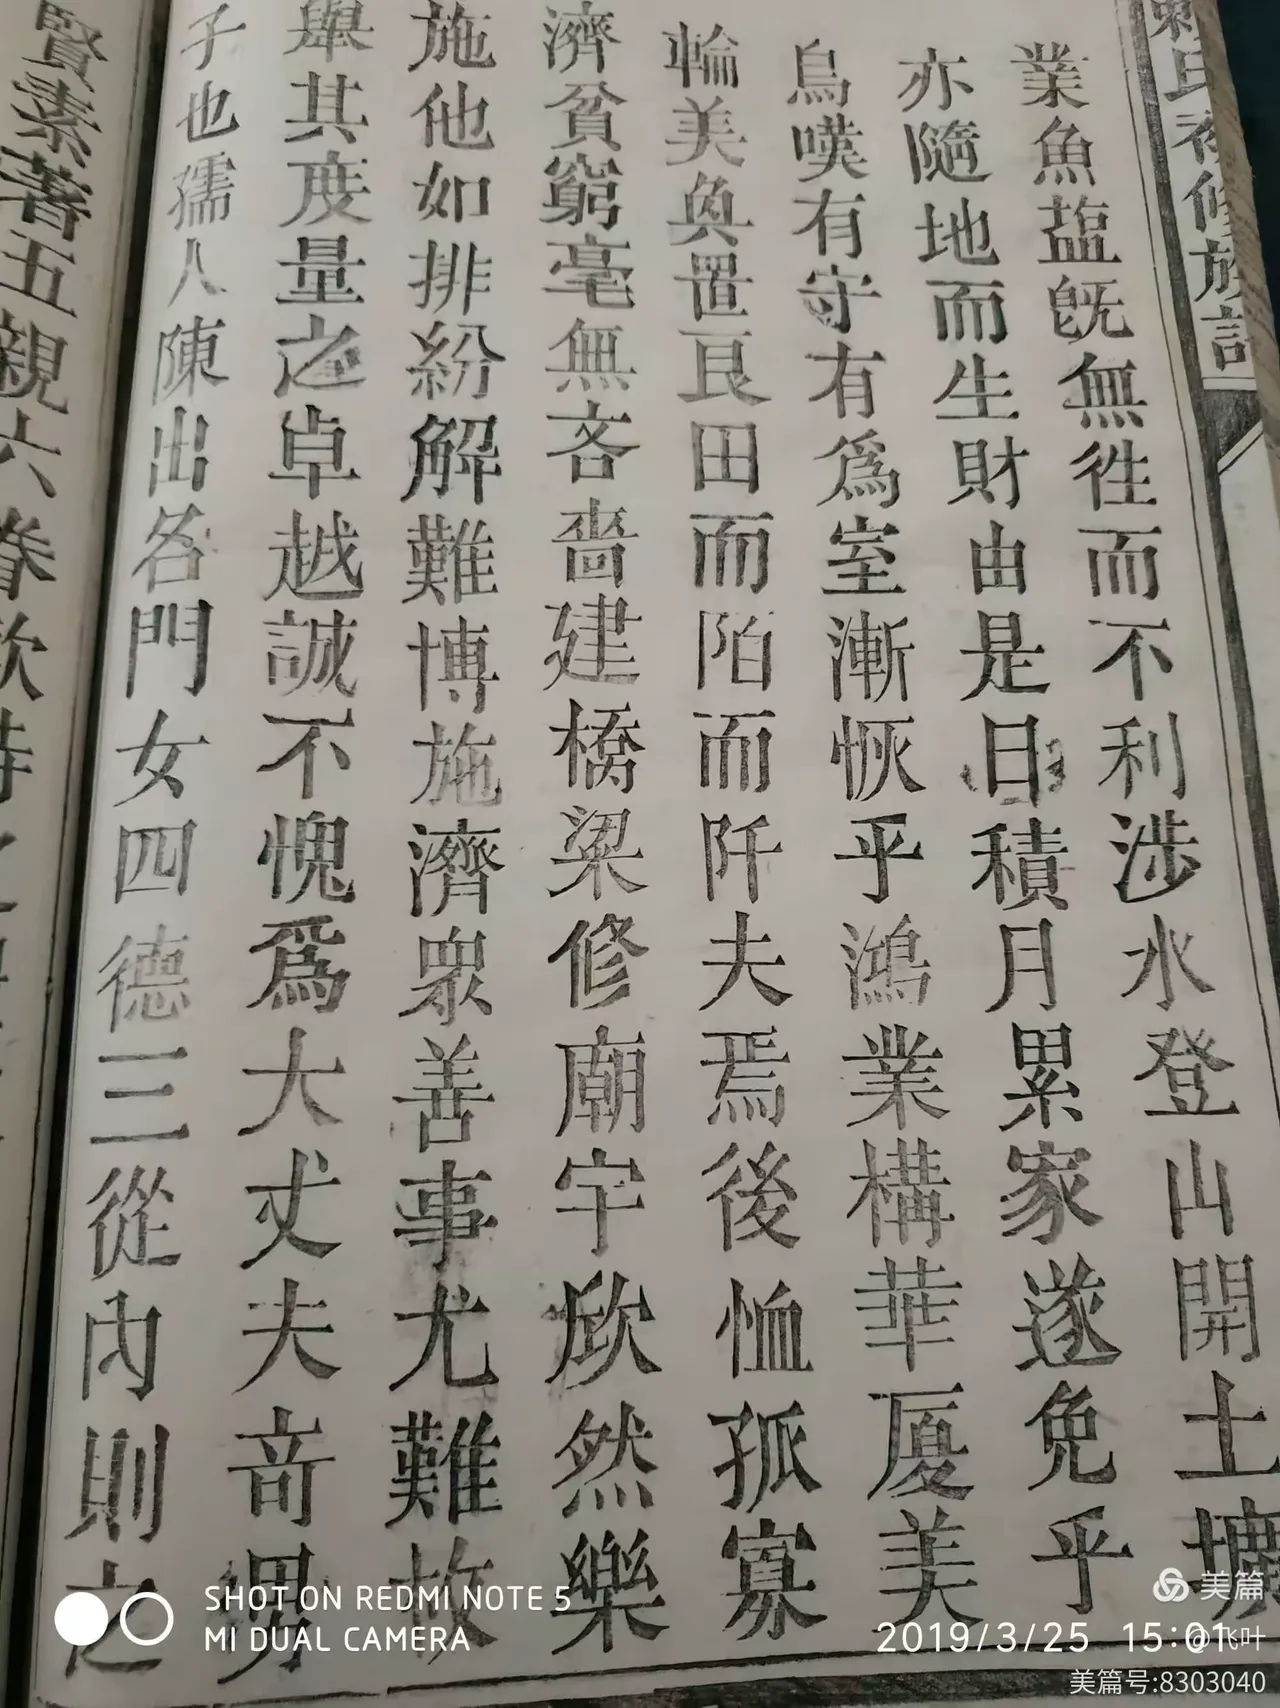 賴氏初修族
業魚蘯旣無徃而不利涉水登山開土壙
亦隨地而生財由是日積月累家遂免乎
鳥嘆有守有爲室漸恢乎鴻業構華厦美
輪美奐置良田而陌而阡夫焉後恤孤寡
濟貧窮毫無吝嗇建橋梁修廟宇欣然樂
施他如排紛解難博施濟眾善事尤難故
舉其度量之卓越誠不愧爲大丈夫竒男
子也孺人陳出名門女四德三從內則之
賢素著五親六眷欽
SHOT ON REDMI NOTE 5
MI DUAL CAMERA
美篇
2019/3/25 15:01
@飞叶
美篇号:8303040